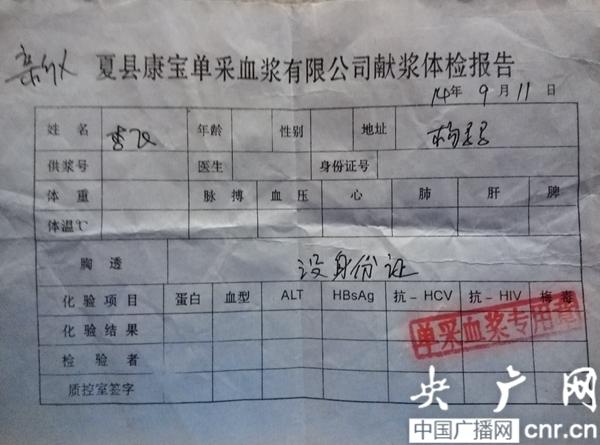 夏县康宝单采血浆有限公司献浆体检报告
14年9月11日
姓名 年龄 性别 地址
供浆号 医生 身份证号
体重 脉搏 血压 心 肺 肝 脾
体温℃
胸透 没身份证
化验项目 蛋白 血型 ALT HBsAg 抗-HCV 抗-HIV 梅毒
化验结果
单采血浆专用章
检验者
质控室签字
央广网
中国广播网 cnr.cn